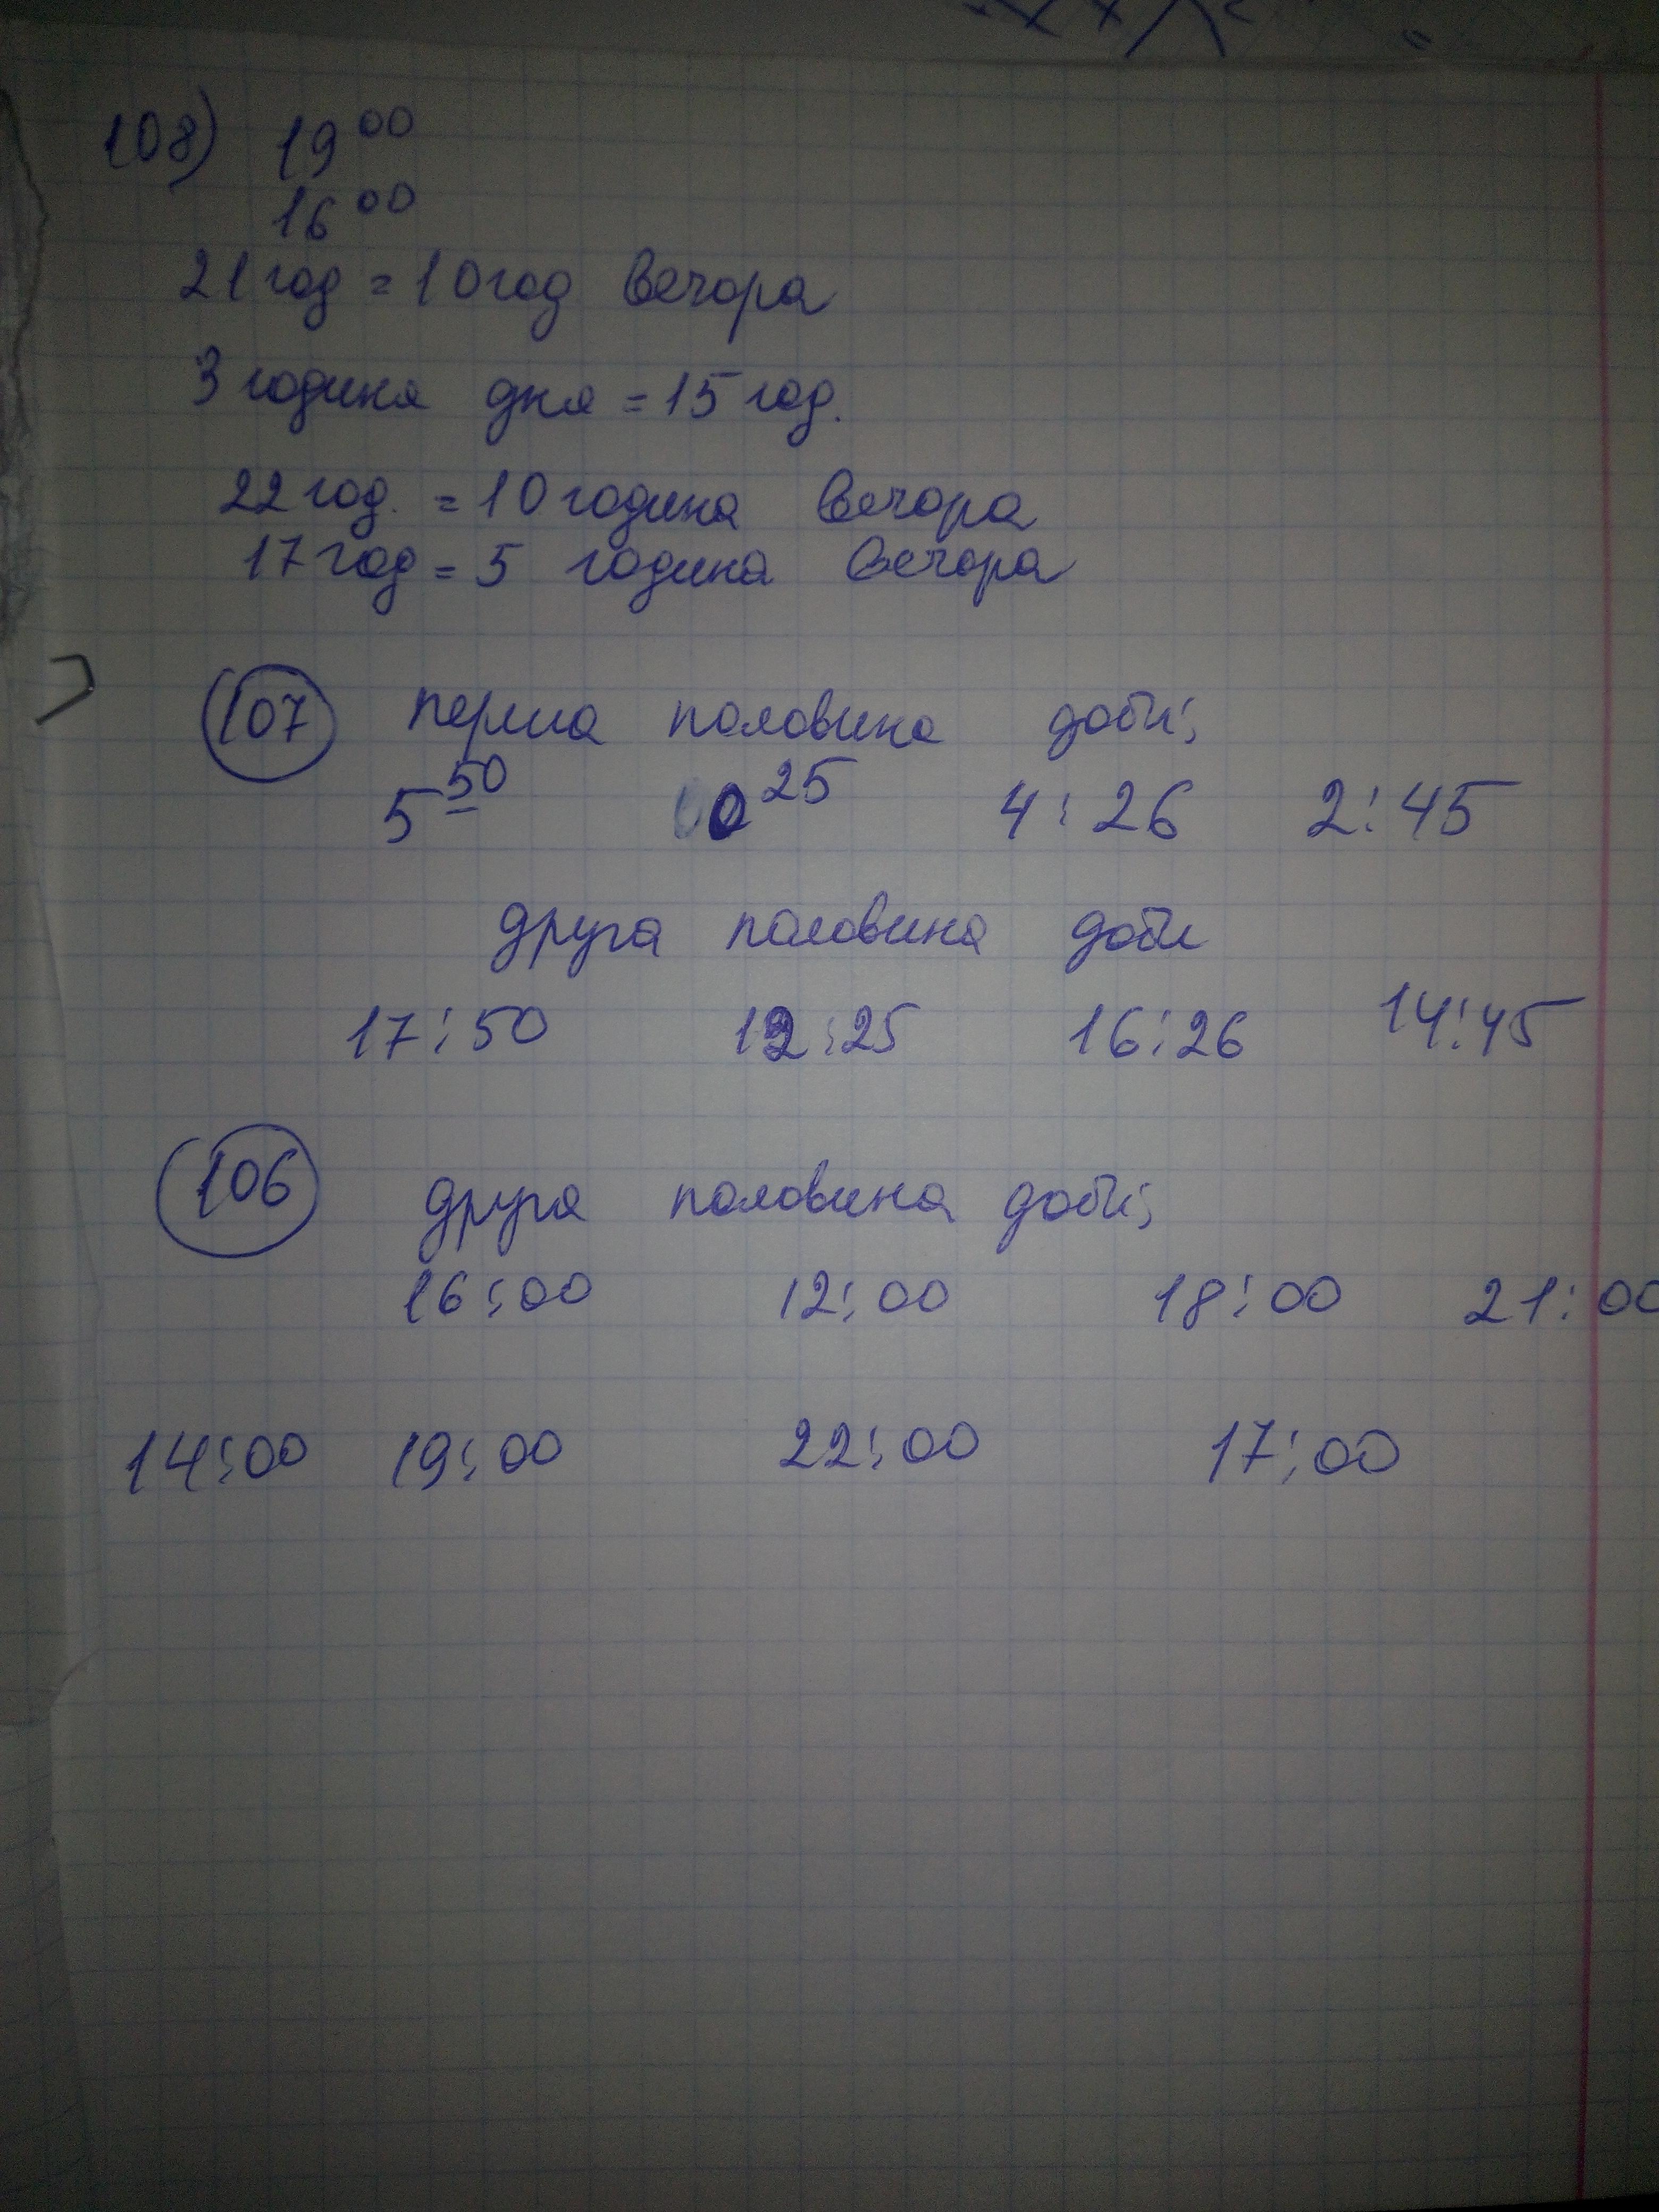 108) 19⁰⁰
16⁰⁰
21 год = 10 год вечора
3 година дня = 15 год.
22 год. = 10 година вечора
17 год = 5 година вечора
107 перша половина доби;
5⁵⁰ 0²⁵ 4:26 2:45
друга половина доби
17:50 12:25 16:26 14:45
106 друга половина доби;
16:00 12:00 18:00 21:00
14:00 19:00 22:00 17:00